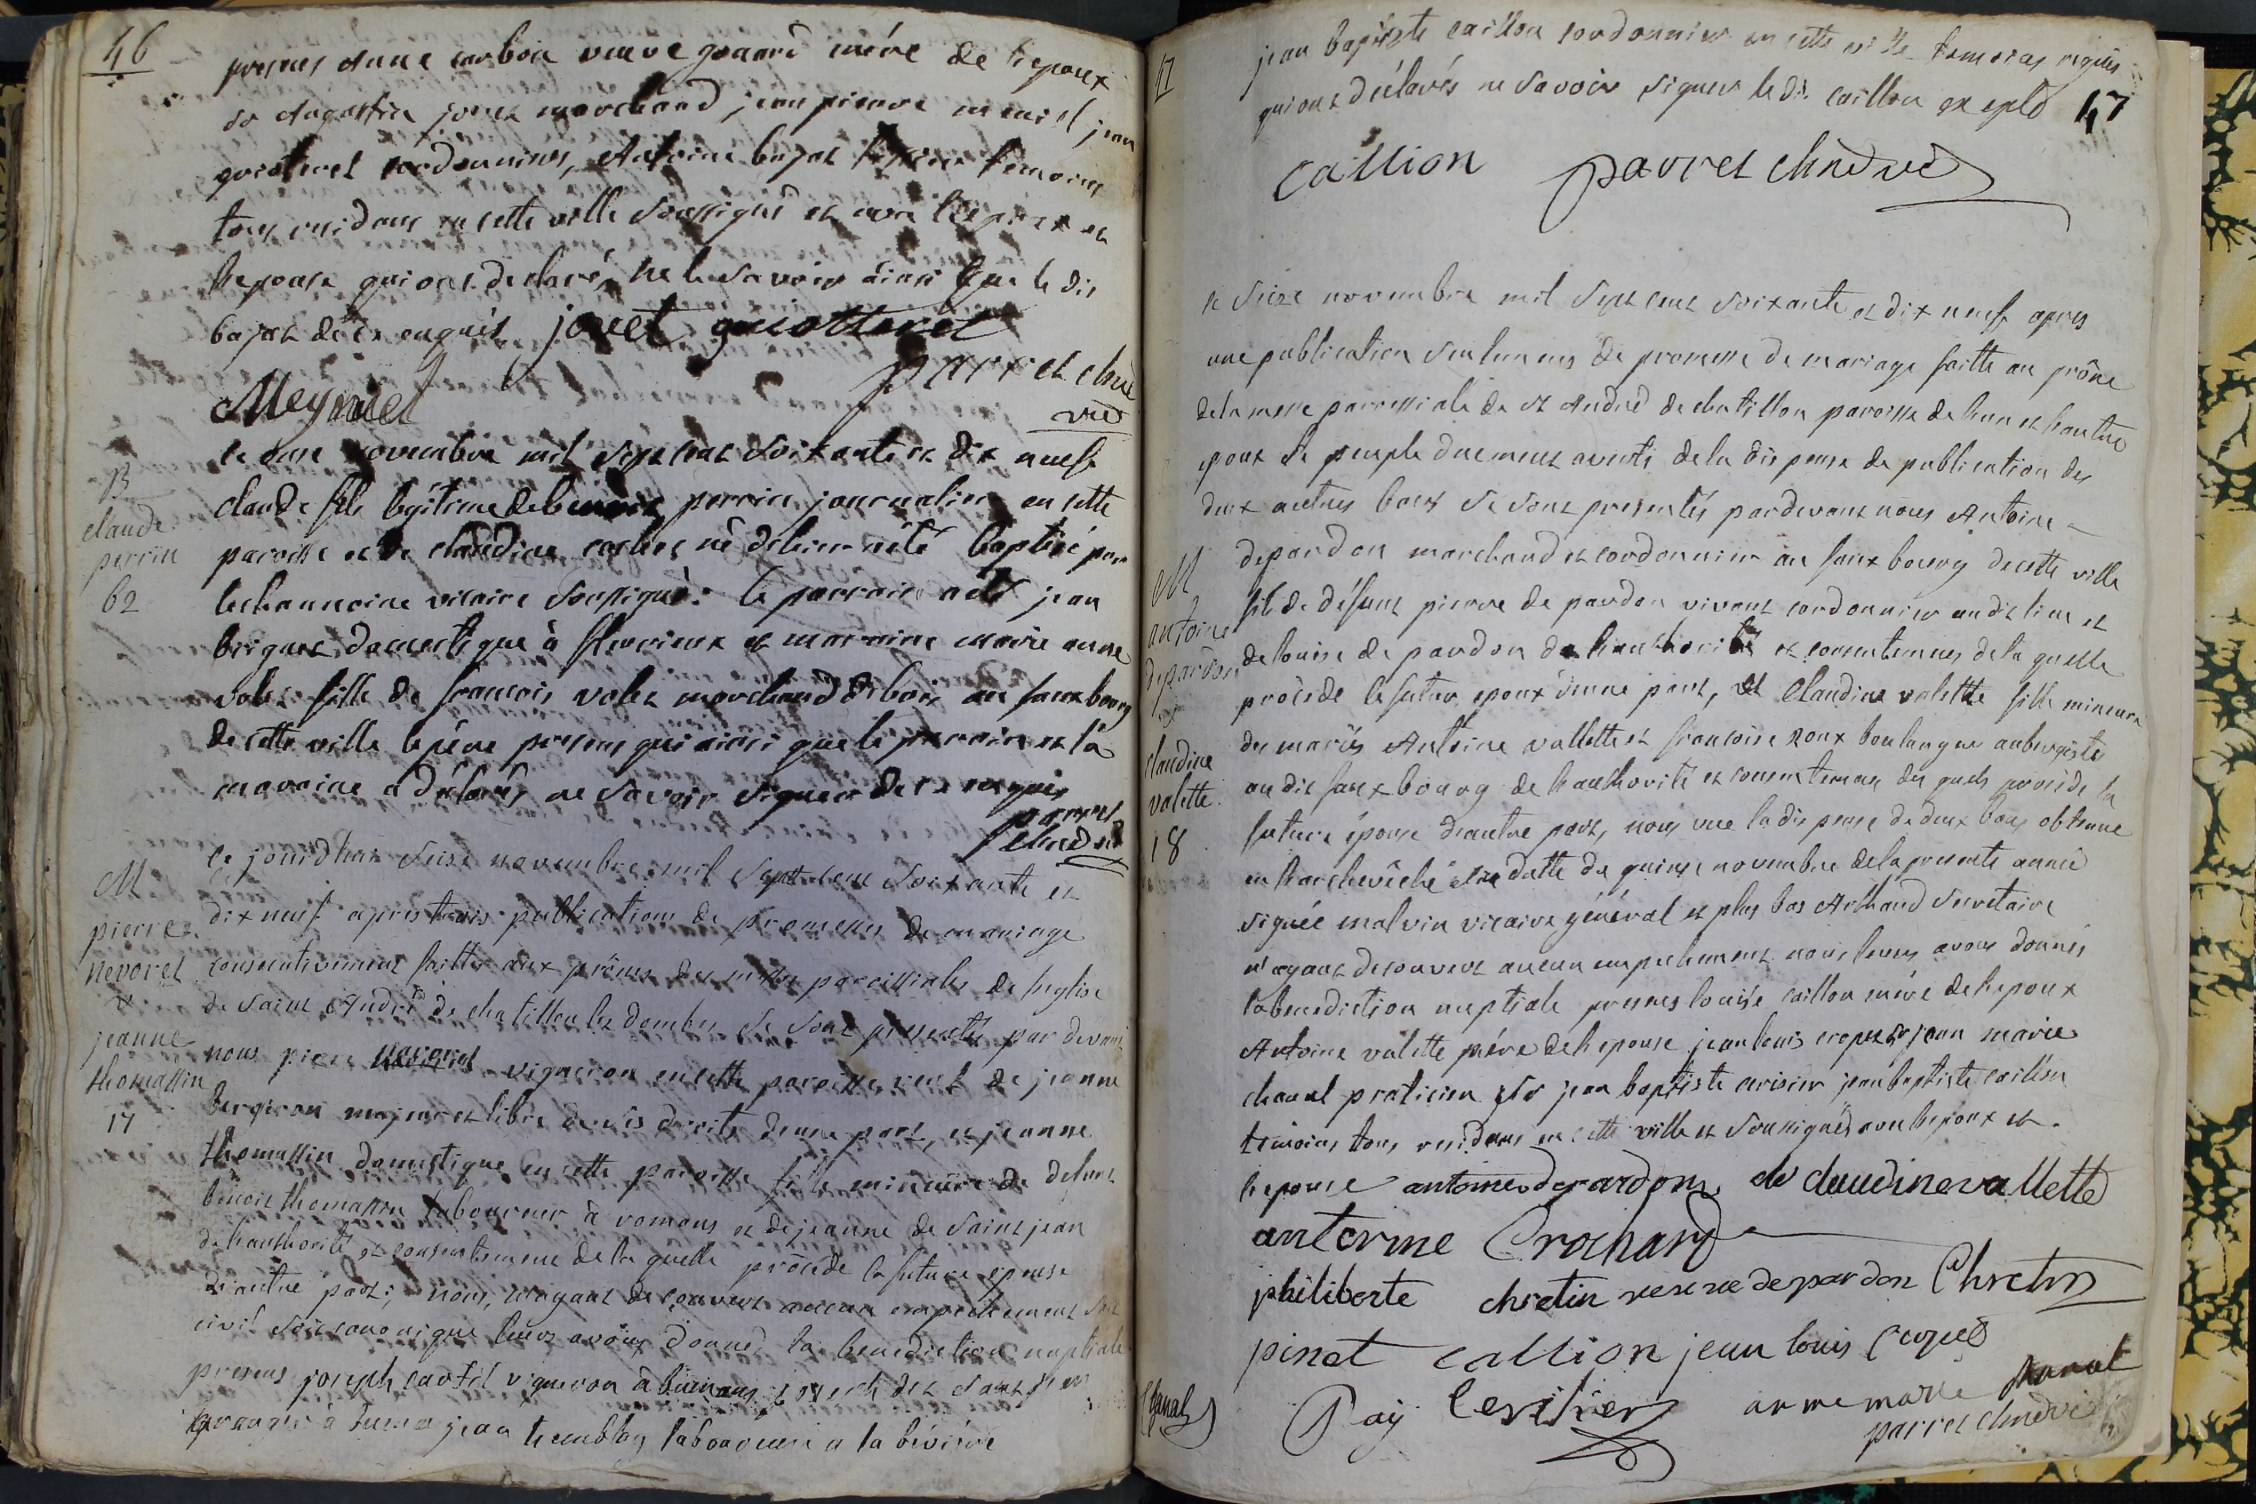 46
presens anne carbon veuve grand mére de lepoux
sr Augustin jouet marchand jean pierre meniel jean
guiotteret cordonniers, Antoine bajat temoins
tous residans en cette ville soussignés et avec lepoux et
lepouse qui ont declaré ne le savoir ainsi que le dit
bajat de ce enquis jouet guiotteret
Meyniel parret chne
vre
B
claude
perrin
62
le onze novembre mil sept cent soixante et dix neuf
claude fils legitime de benoit perrin journalier en cette
paroisse et de claudine né dehier a été baptisé par
le channoine vicaire soussigné. le parrain a été jean
briguet domestique à fleurieux et marraine marie anne
volet fille de francois volet marchand de bois au fauxbourg
de cette ville le pére present qui ainsi que le parrain et la
maraine a déclarés ne savoir signer de ce requis
parret
chne vre
M
pierre
nevoret
et
jeanne
thomassin
17
le jourdhui seize novembre mil sept cent soixante et
dix neuf apres trois publications de promesses de mariage
consecutivement faittes aux prônes des messes paroissiales de leglise
de saint André de chatillon les dombes se sont presentés par devant
nous piere nevoret vigneron en cette paroisse veuf de jeanne
bergiron majeur et libre de ses droits dune part, et jeanne
thomassin domestique en cette paroisse fille mineure de defunt
benoit thomassin laboureur à romans et de jeanne de saint jean
de lauthorité et consentement de la quelle procède la future epouse
d'autre part; nous, n'ayant decouvert aucun empechement soit
civil soit canonique leurs avons donnés la benediction nuptiale
presens joseph cartel vigneron à joseph
à jean tremblay laboureur a la
17
47
jean baptiste caillon cordonnier en cette ville temoins requis
qui ont déclarés ne savoir signer le dit caillon excepté
callion parret chne vre
M
antoine
depardon
et
claudine
valette
18
le seize novembre mil sept cent soixante et dix neuf apres
une publication seulement de promesse de mariage faitte au prône
de la messe parroissiale de st André de chatillon paroisse de lun et lautre
epoux le peuple duement averti de la dispense de publication des
deux autres bans se sont presentés pardevant nous Antoine
depardon marchand et cordonnier au fauxbourg de cette ville
fils de défunt pierre de pardon vivant cordonnier audit lieu et
de louise de pardon de lauthorité et consentement de la quelle
procède le futur epoux d'une part, et Claudine valette fille mineure
des mariés Antoine vallette et francoise roux boulanger aubergiste
audit fauxbourg de lauthorité et consentement des quels procède la
future épouse d'autre part, nous vue la dispense de deux bans obtenue
en l'archevêché en datte du quinze novembre de la presente année
signée malvin vicaire général et plus bas Arthaud secretaire
n'ayant decouvert aucun empechement nous leurs avons donnés
la benediction nuptiale presens louise caillon mére de lepoux
Antoine valette pére de lepouse jean louis croquet sr jean marie
chanal praticien sr jean baptiste cerisier jean baptiste caillon
temoins tous residans en cette ville et soussignés avec lepoux et
lepouse antoine depardon de claudine vallette
antorine Crochard
philiberte chretin depardon Chretin
pinet callion jean louis croquet
Chanal Pay Cerisier anne marie chanal
parret chne vre